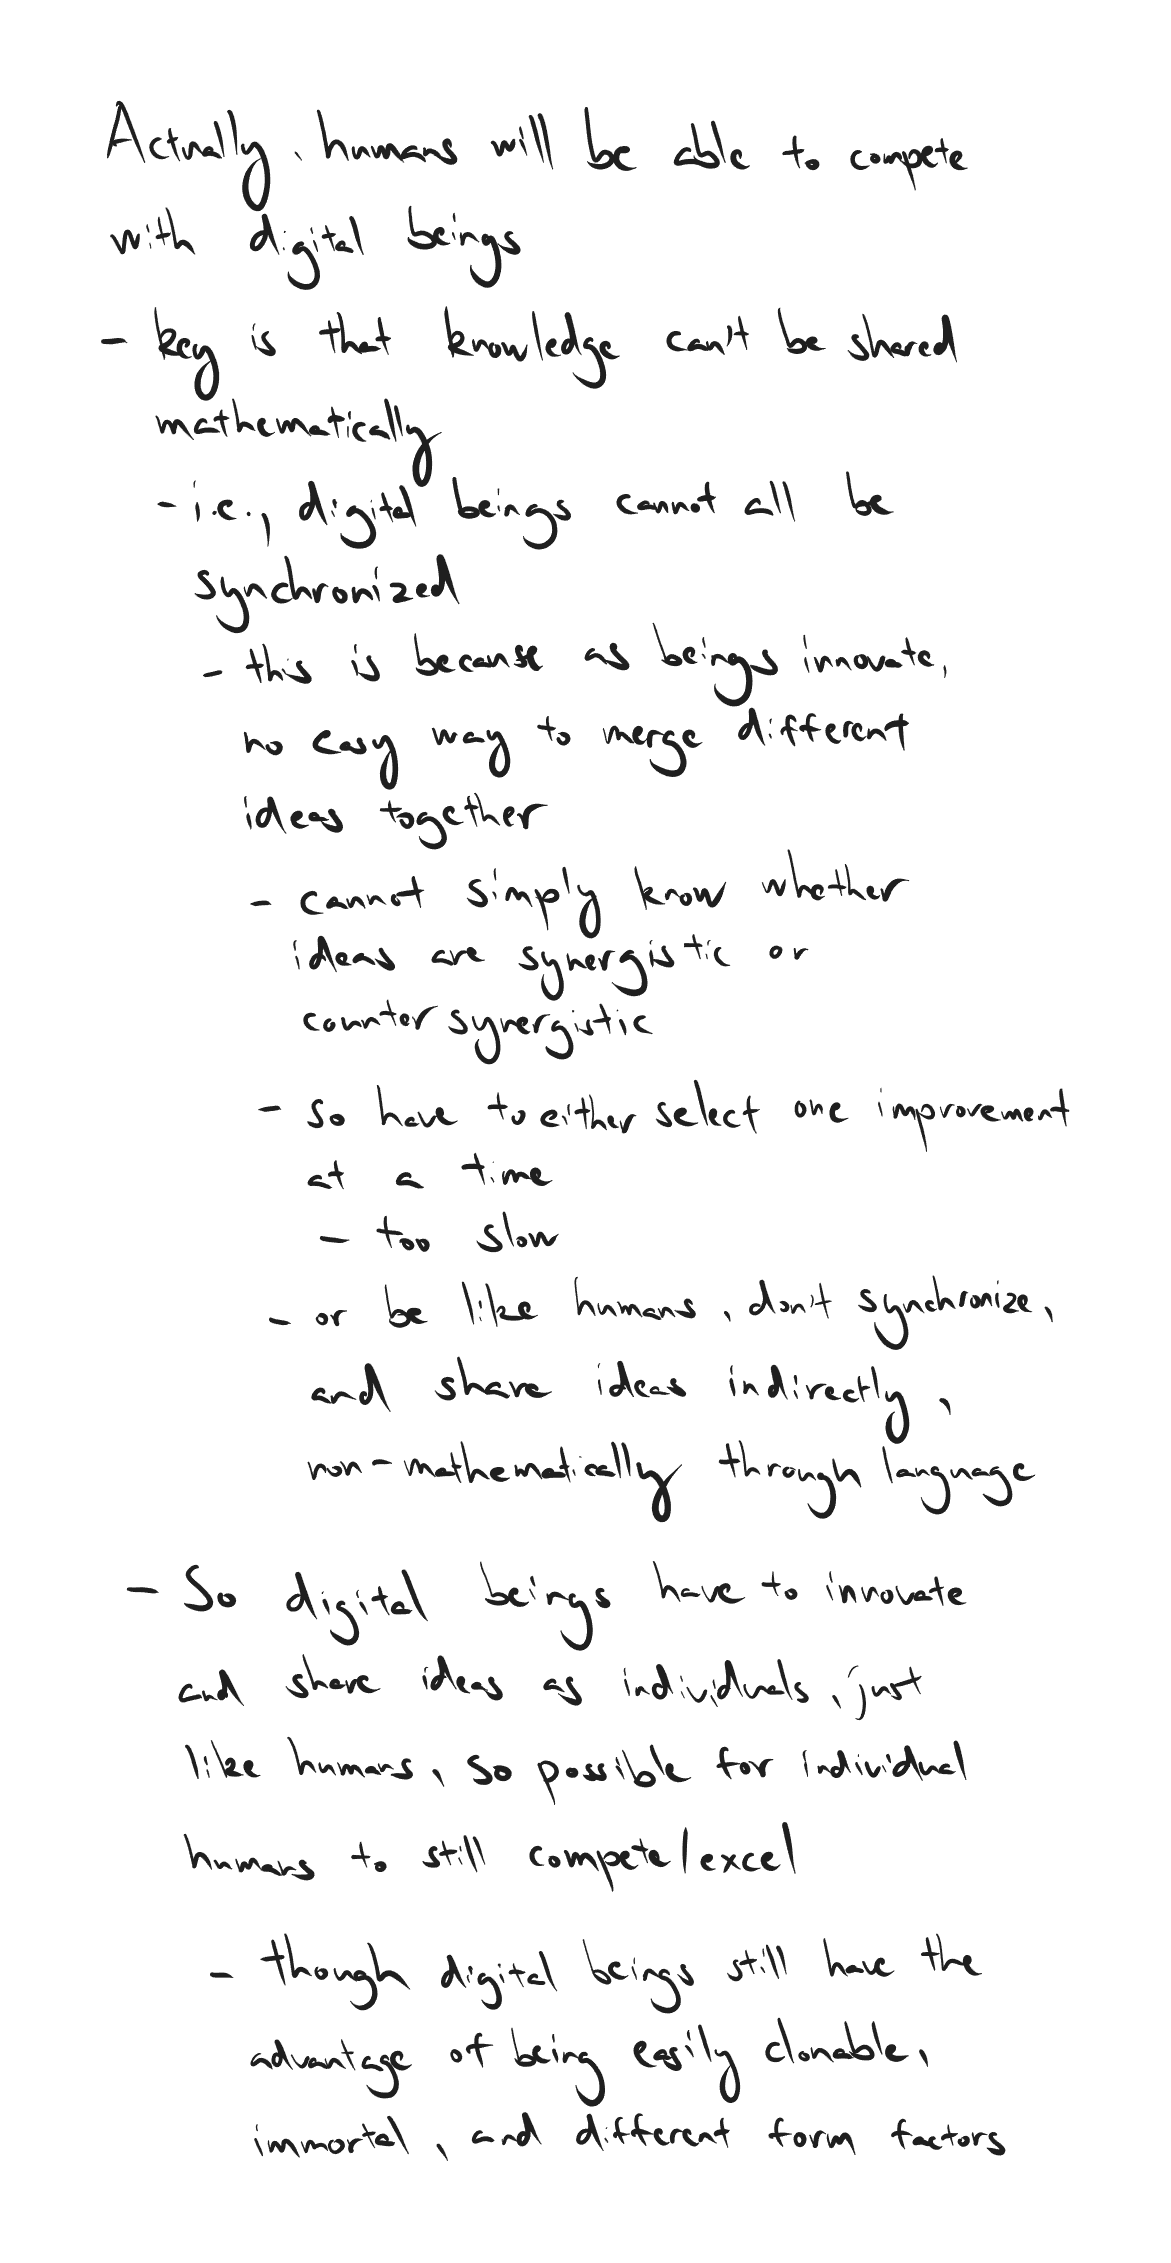 Actually, humans will be able to compete
with digital beings
- key is that knowledge can't be shared
mathematically
- i.e., digital beings cannot all be
synchronized
- this is because as beings innovate,
no easy way to merge different
ideas together
- cannot simply know whether
ideas are synergistic or
counter synergistic
- so have to either select one improvement
at a time
- too slow
- or be like humans, don't synchronize,
and share ideas indirectly,
non-mathematically through language
- So digital beings have to innovate
and share ideas as individuals, just
like humans, so possible for individual
humans to still compete/excel
- though digital beings still have the
advantage of being easily clonable,
immortal, and different form factors